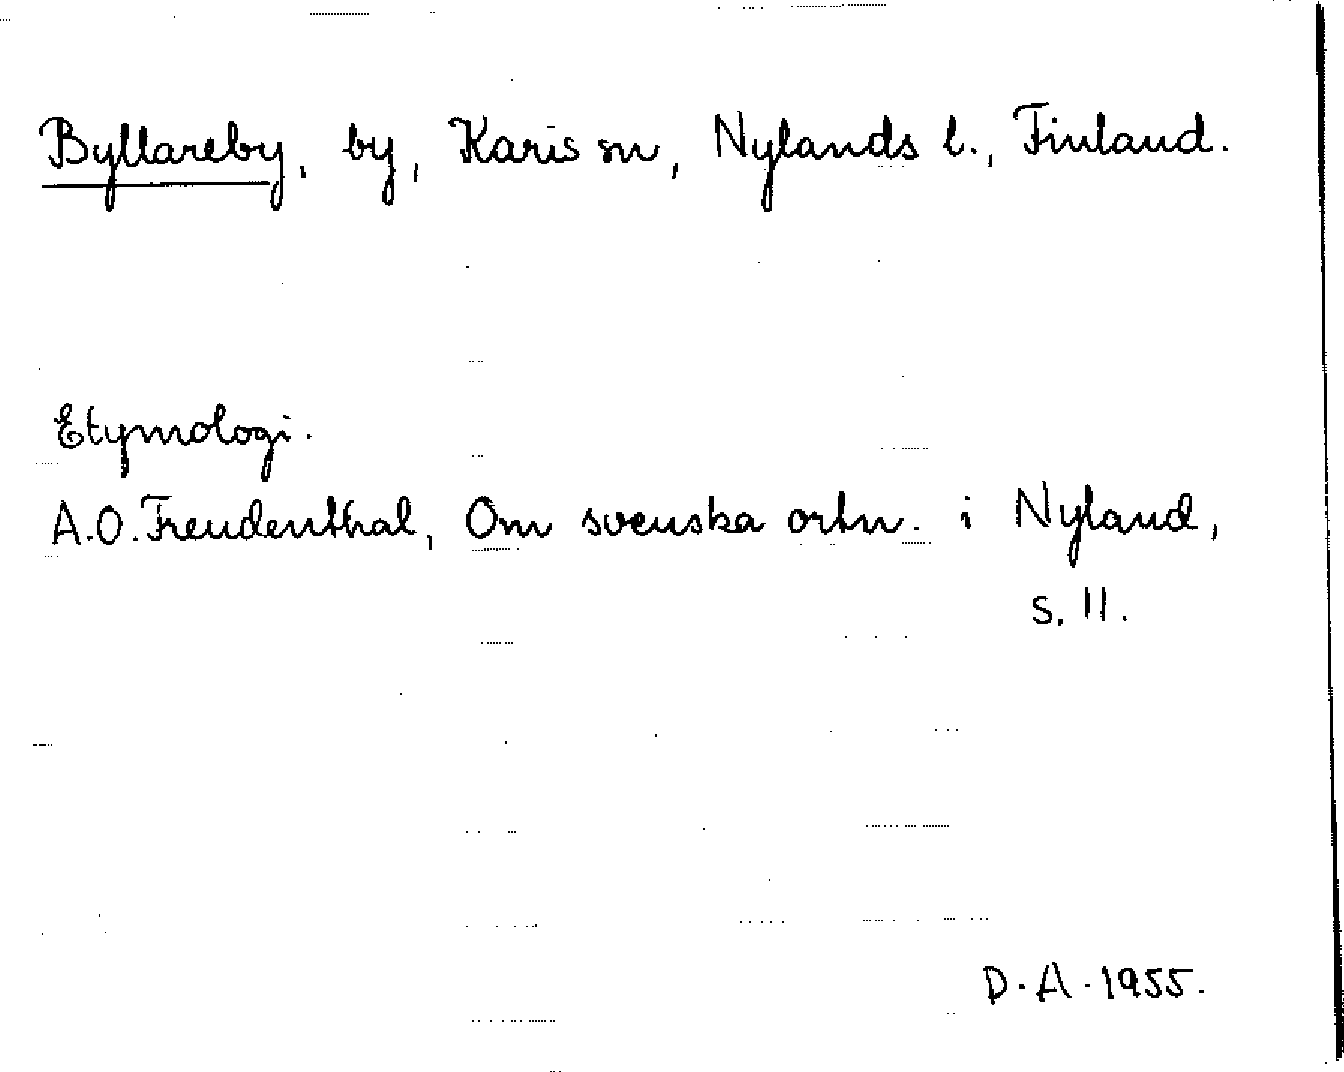 Byllareby, by, Karis sn, Nylands l., Finland.
Etymologi.
A.O. Freudenthal, Om svenska ortn. i Nyland,
s. 11.
D.A. 1955.